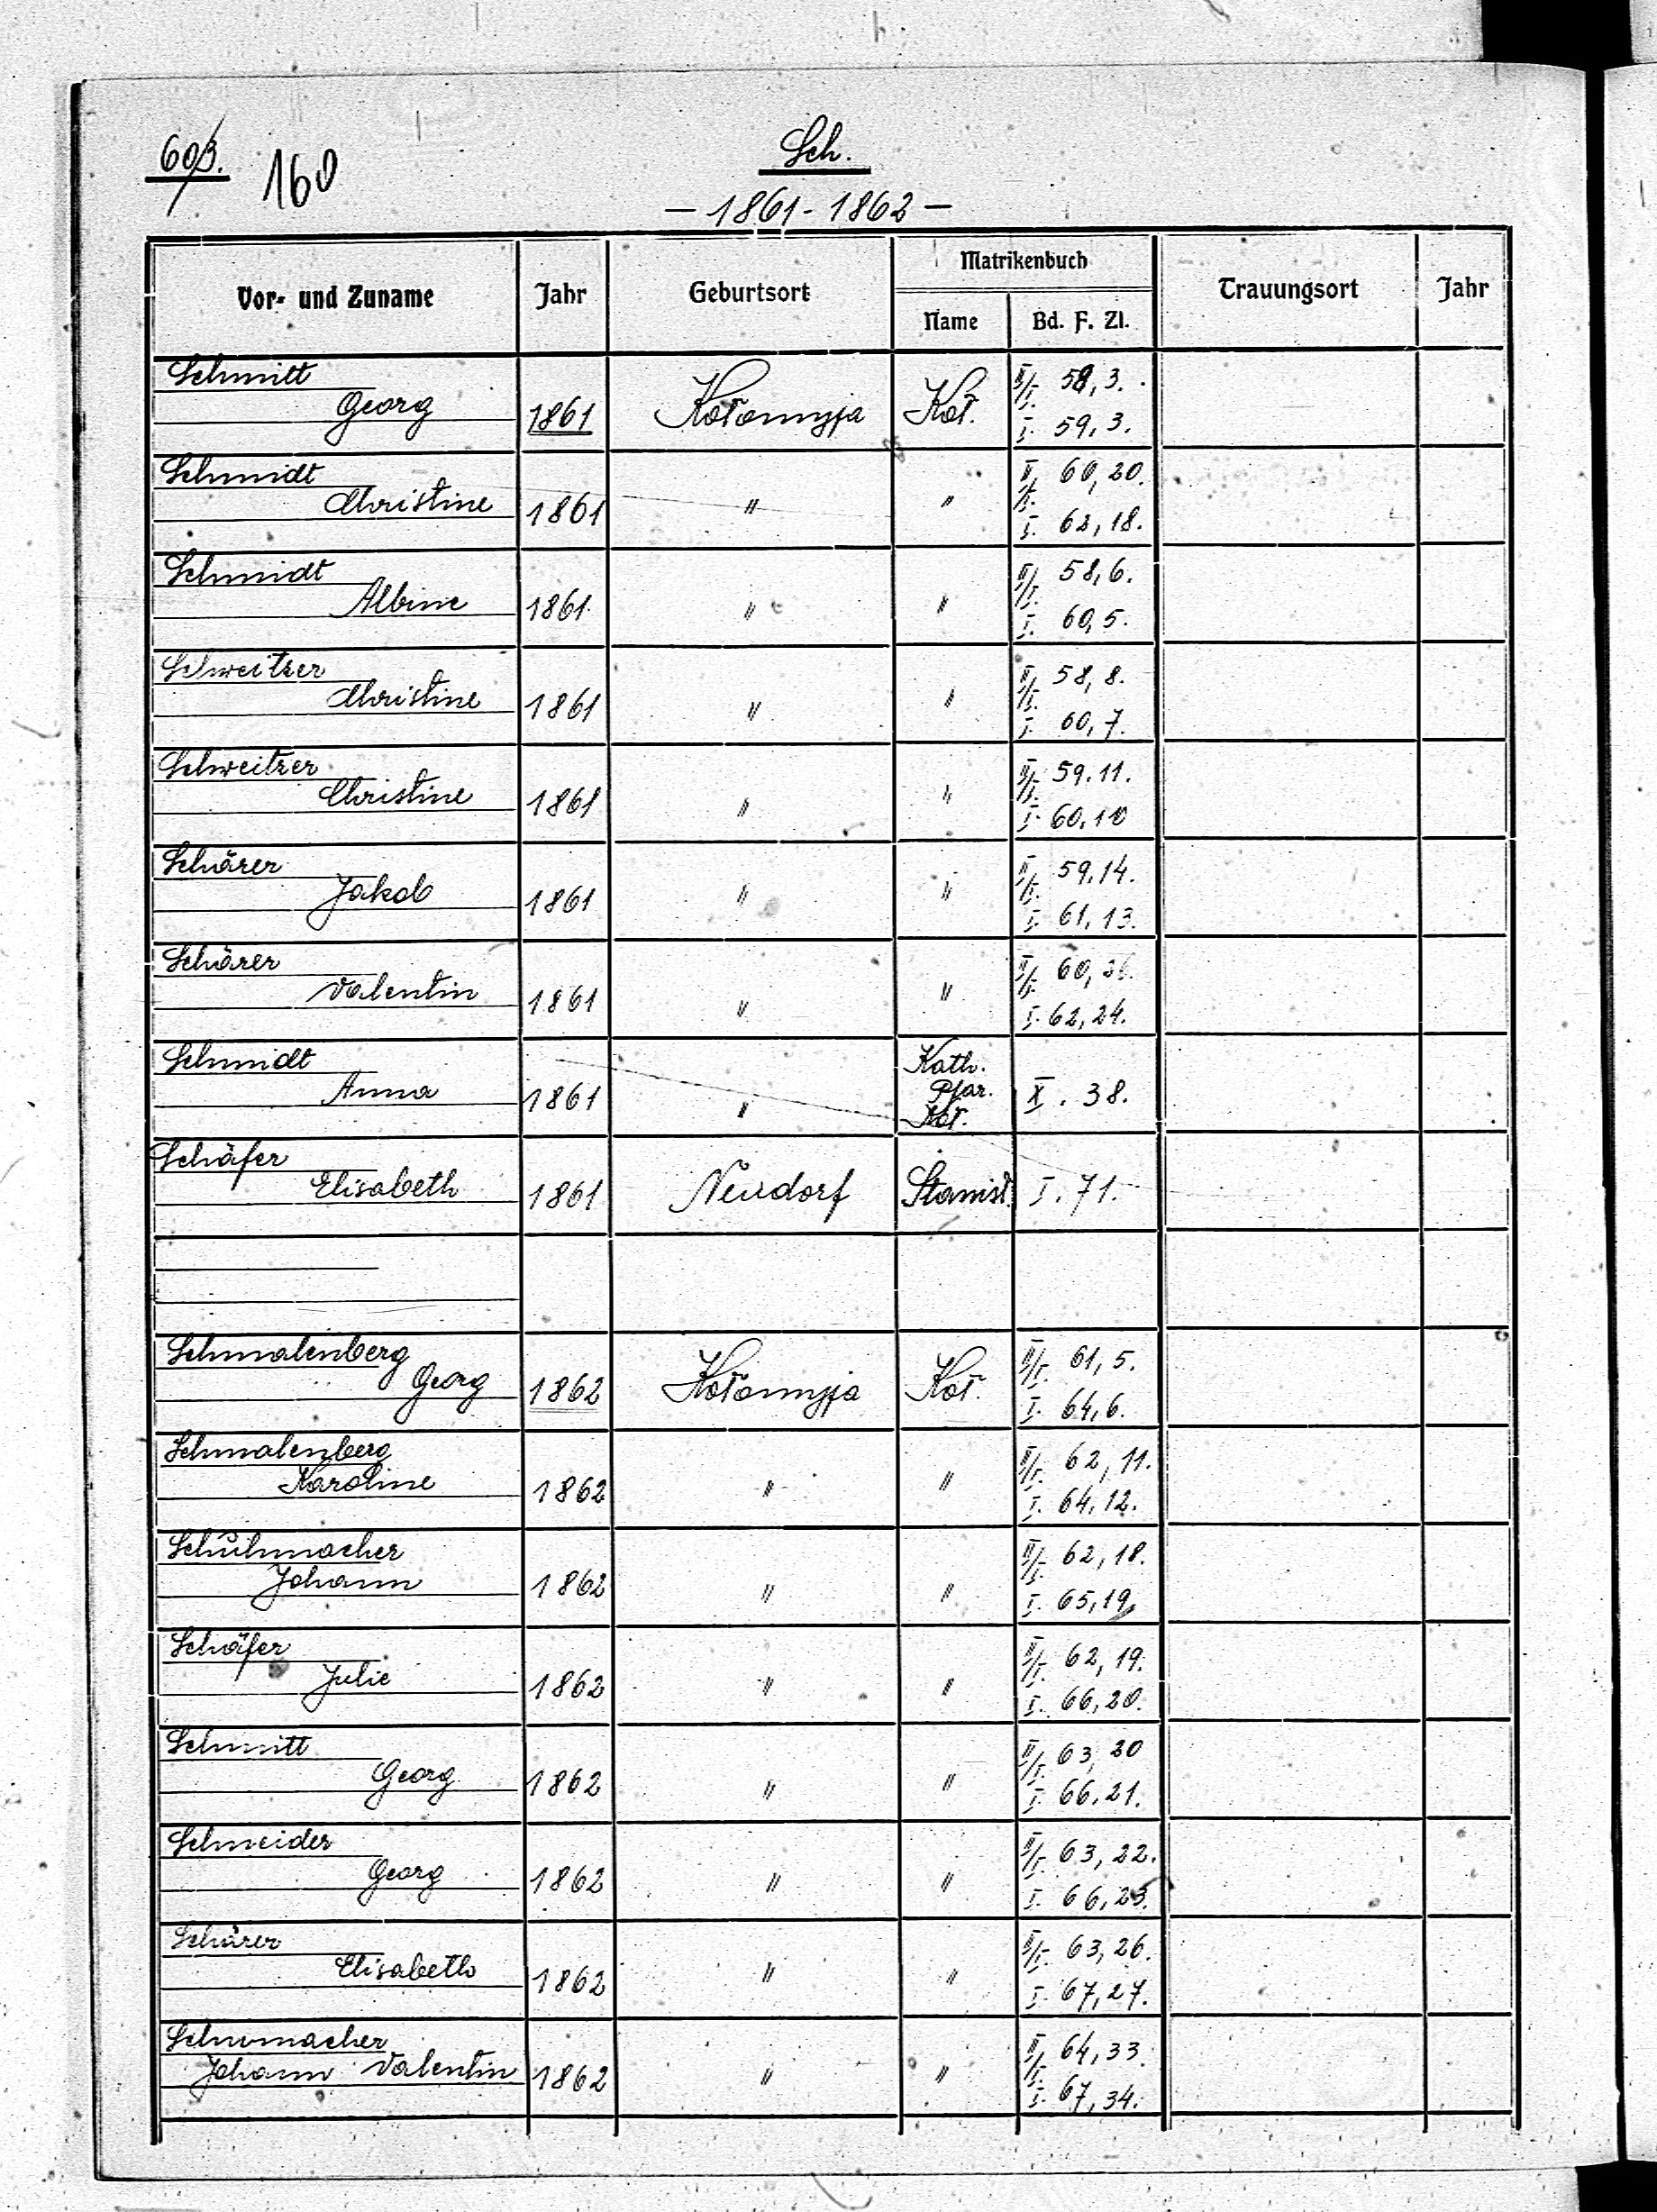 603. 160
Sch.
- 1861 - 1862 -
Vor- und Zuname Jahr Geburtsort Matrikenbuch Trauungsort Jahr
Name Bd. F. Zl.
Schmitt II/I. 58, 3.
Georg 1861 Kołomyja Koł. I. 59, 3.
Schmidt II/I. 60, 20.
Christine 1861 " " I. 62, 18.
Schmidt II/I. 58, 6.
Albine 1861 " " I. 60, 5.
Schweitzer II/I. 58, 8.
Christine 1861 " " I. 60, 7.
Schweitzer II/I. 59. 11.
Christine 1861 " " I. 60. 10
Schärer II/I. 59. 14.
Jakob 1861 " " I. 61, 13.
Schärer II/I. 60,
Valentin 1861 " " I. 62, 24.
Schmidt Kath.
Anna 1861 " Pfar. X. 38.
Koł.
Schäfer
Elisabeth 1861 Neudorf Stanisł. I. 71.
Schmalenberg II/I. 61, 5.
Georg 1862 Kołomyja Koł. I. 64, 6.
Schmalenberg II/I. 62, 11.
Karoline 1862 " " I. 64, 12.
Schuhmacher II/I. 62, 18.
Johann 1862 " " I. 65, 19.
Schäfer II/I. 62, 19.
Julie 1862 " " I. 66, 20.
Schmitt II/I. 63, 20
Georg 1862 " " I. 66, 21.
Schneider II/I. 63, 22.
Georg 1862 " " I. 66, 23.
Schärer II/I. 63, 26.
Elisabeth 1862 " " I. 67, 27.
Schumacher II/I. 64, 33.
Johann Valentin 1862 " " I. 67, 34.